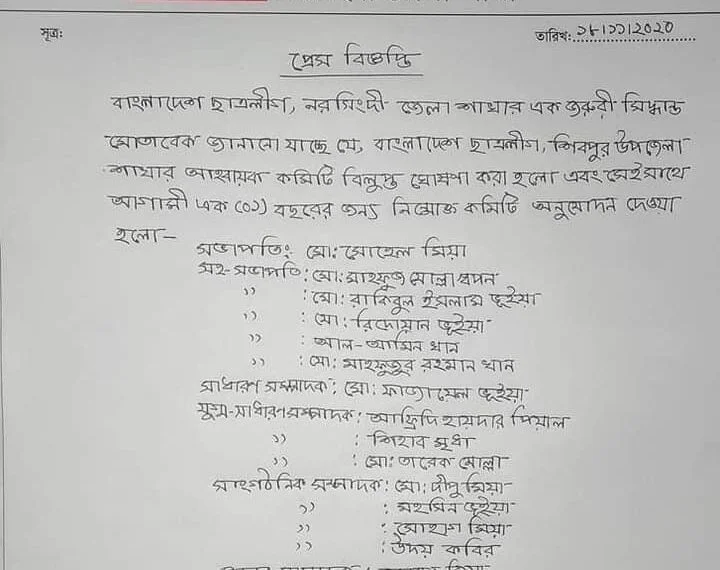 সূত্র:
তারিখ: ২৮।১১।2020
প্রেস বিজ্ঞপ্তি
বাংলাদেশ ছাত্রলীগ, নরসিংদী জেলা শাখার এক জরুরী সিদ্ধান্ত
মোতাবেক জানানো যাচ্ছে যে, বাংলাদেশ ছাত্রলীগ, শিবপুর উপজেলা
শাখার আহ্বায়ক কমিটি বিলুপ্ত ঘোষণা করা হলো এবং সেই সাথে
আগামী এক (০১) বছরের জন্য নিম্নোক্ত কমিটি অনুমোদন দেওয়া
হলো—
সভাপতি: মো: সোহেল মিয়া
সহ-সভাপতি: মো: মাহফুজ মোল্লা স্বপন
" : মো: রাকিবুল ইসলাম ভূইয়া
" : মো: রিদোয়ান ভূইয়া
" : আল-আমিন খান
" : মো: মাহফুজুর রহমান খান
সাধারণ সম্পাদক: মো: ফাজায়েল ভূইয়া
যুগ্ম-সাধারণ সম্পাদক: আফ্রিদি হায়দার পিয়াল
" : শিহাব মৃধা
" : মো: তারেক মোল্লা
সাংগঠনিক সম্পাদক: মো: দীপু মিয়া
" : মহসিন ভূইয়া
" : সোহাগ মিয়া
" : উদয় কবির